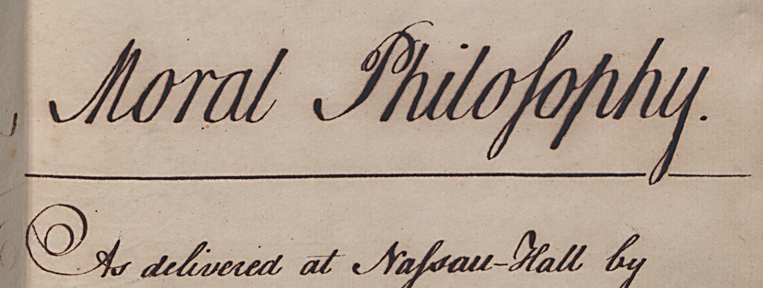 Moral Philoſophy.
As delivered at Naſsau-Hall by